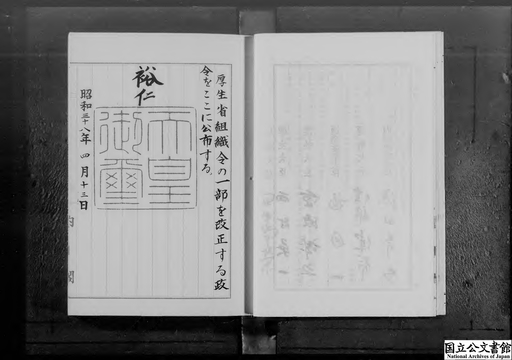 厚生省組織令の一部を改正する政
令をここに公布する。
裕仁
天皇
御璽
昭和三十八年 四月十三日
内閣
国立公文書館
National Archives of Japan